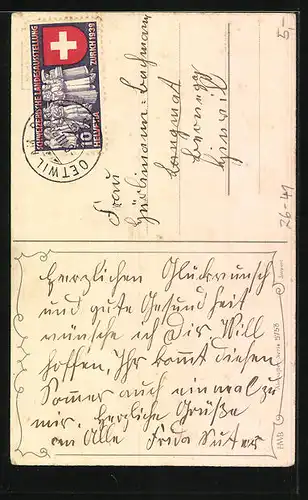 SCHWEIZERISCHE LANDESAUSSTELLUNG
ZÜRICH 1939
10
HELVETIA
OETWIL
5.-
Frau
Bachmann
Langmat
Hinwil
26-41
Herzlichen Glückwunsch
und gute Gesundheit
wünsche ich Dir. Will
hoffen, Ihr kommt diesen
Sommer auch einmal zu
mir. Herzliche Grüße
an Alle Frida Suter
HWB
Serie 9758